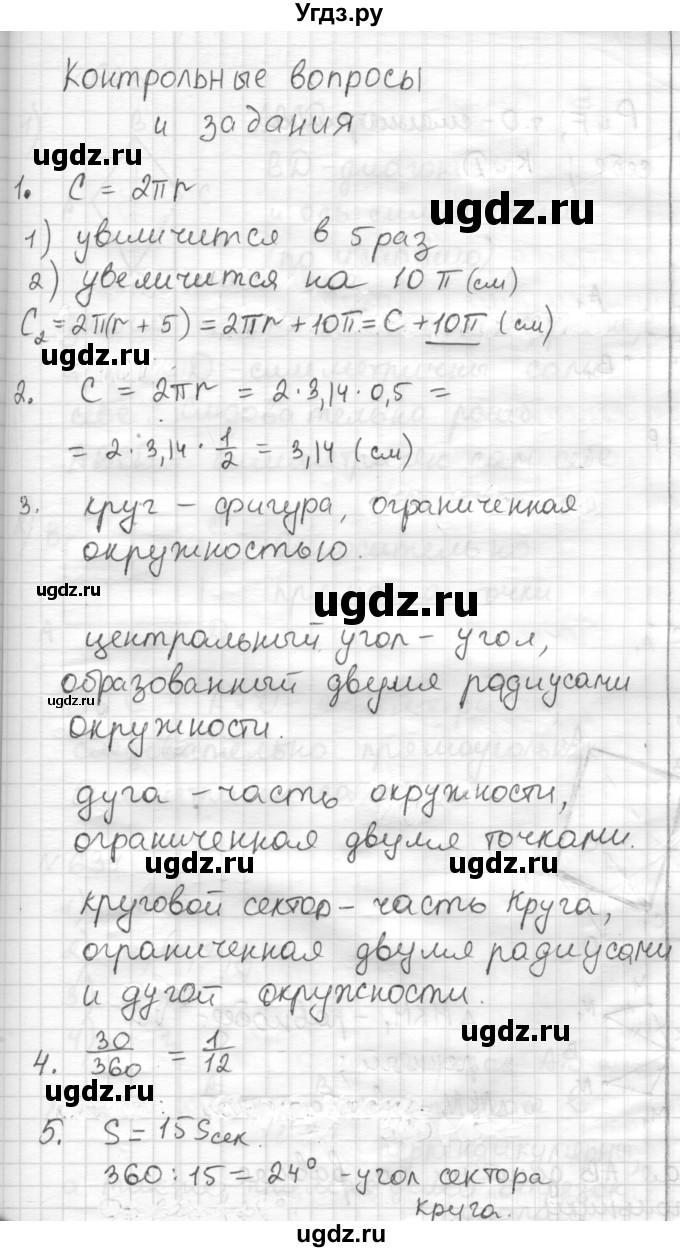 Угдз.ру
Контрольные вопросы
и задания
ugdz.ru
1. C = 2πr
ugdz.ru
1) увиличится в 5 раз
2) увеличится на 10 π (см)
C₂ = 2π(r + 5) = 2πr + 10π = C + 10π (см)
ugdz.ru
2. C = 2πr = 2 · 3,14 · 0,5 =
= 2 · 3,14 · 1/2 = 3,14 (см)
3. круг – фигура, ограниченная
окружностью.
ugdz.ru ugdz.ru
центральный угол – угол,
образованный двумя радиусами
ugdz.ru
окружности.
дуга – часть окружности,
ограниченная двумя точками.
ugdz.ru ugdz.ru
круговой сектор – часть круга,
ограниченная двумя радиусами
и дугой окружности.
ugdz.ru
4. 30/360 = 1/12
ugdz.ru
5. S = 15 Sсек.
360 : 15 = 24° – угол сектора
круга.
ugdz.ru ugdz.ru